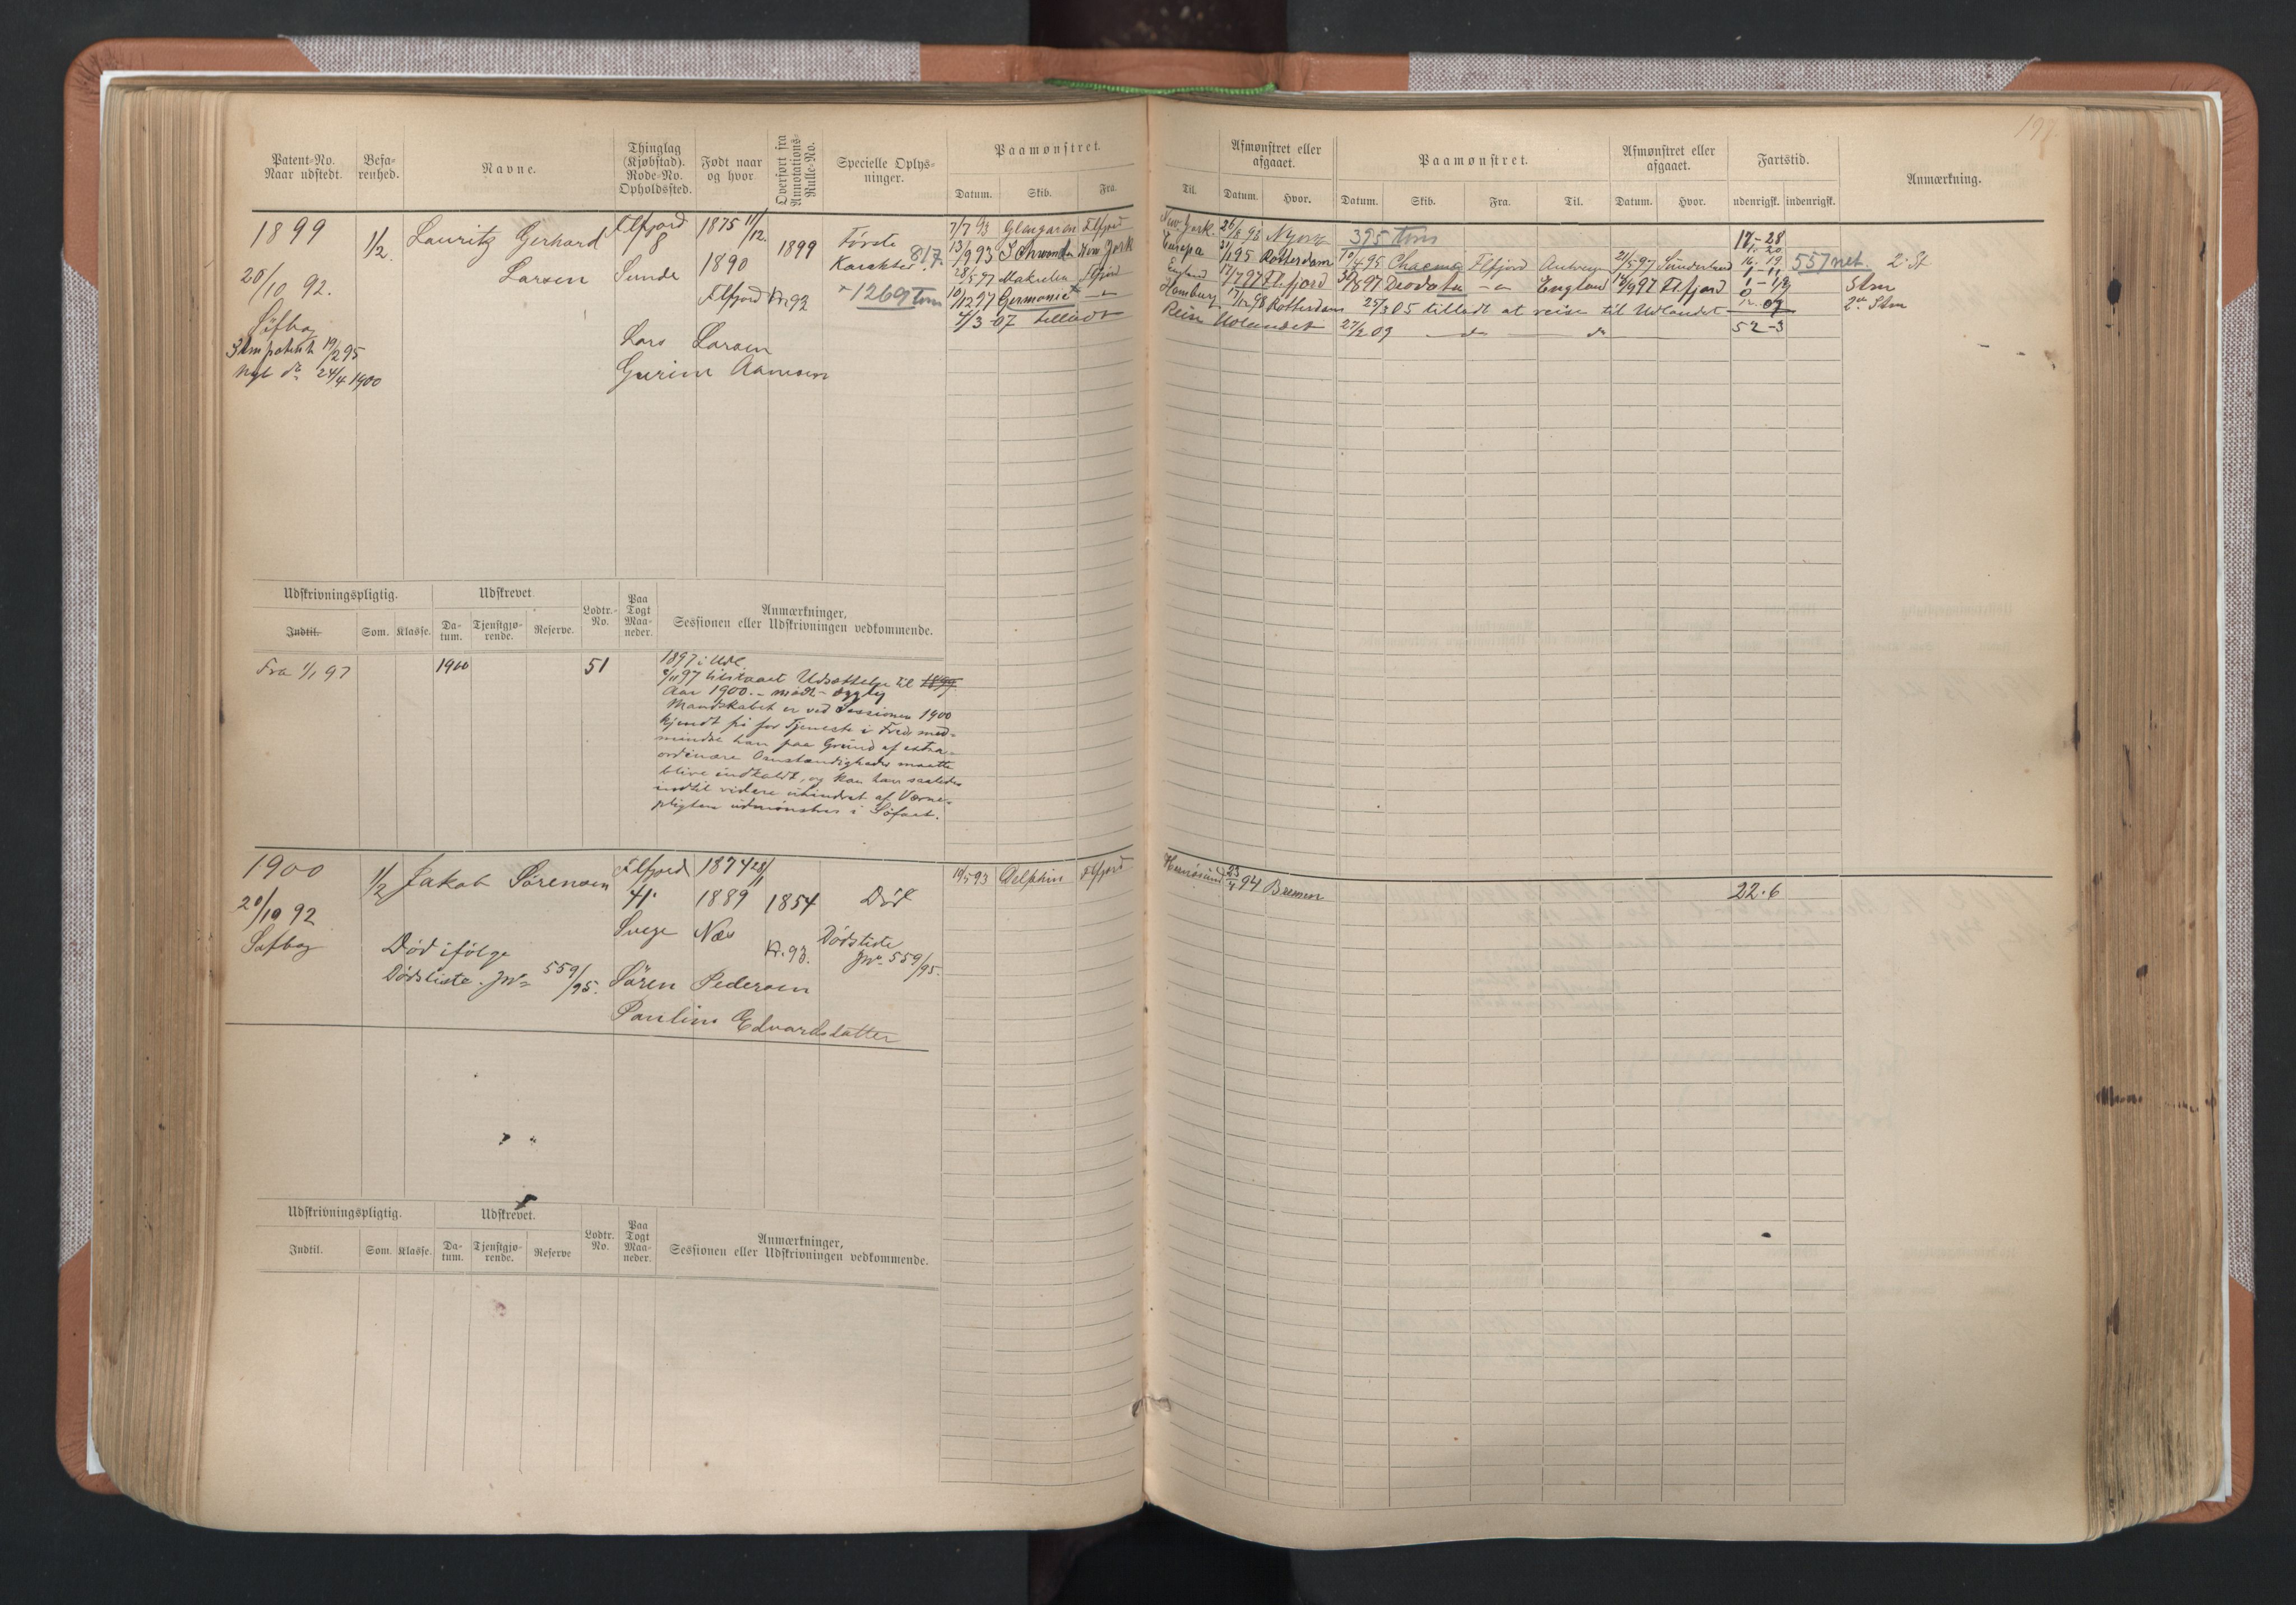 197
Patent-No.
Naar udstedt.
Befa-
renhed.
Navne.
Thinglag
(Kjøbstad).
Rode-No.
Opholdssted.
Født naar
og hvor
Overført fra
Annotations-
Rulle-No.
Specielle Oplys-
ninger.
Paamønstret.
Datum. Skib. Fra.
Til.
Afmønstret eller
afgaaet.
Datum. Hvor.
Paamønstret.
Datum. Skib. Fra. Til.
Afmønstret eller
afgaaet.
Datum. Hvor.
Fartstid.
udenrigsk. indenrigsk.
Anmærkning.
1899
20/10 92.
19/2 95
24/4 1900
1/2.
Lauritz Gerhard
Larsen
Flfjord
8
Sunde
1875 11/12.
1890
Flfjord
1899
Kr. 92
Første
Karakter 817.
1269 Tons
Lars Larsen
7/7 93 Glengaron Flfjord
New York. N York 395 Tons 17-28
13/9 93 New York
Europa 31/1 95 Rotterdam 10/4 95 Flfjord Antwerpen 21/5 97 Sunderland 16. 19 557 net. 2. St
28/5 97 Makrelen Flfjord
England Flfjord 97 Deodata England 97 Flfjord Stm
10/12 97 Germanic
Hamburg 98 Rotterdam 05 tilladt at reise til Udlandet 2. Stm
4/3 07 tilladt
Reise Udlandet 27/2 09 do do 52-3
Udskrivningspligtig.
Udskrevet.
Lodtr.-
No.
Paa
Togt
Maa-
neder.
Anmærkninger,
Sessionen eller Udskrivningen vedkommende.
Indtil. Som. Klasse. Da-
tum. Tjenstgjø-
rende. Reserve.
Fra 1/1 97
1900
51
1897 i Udl.
97 tilstaaet Udsættelse til 1899
Aar 1900. - mødt -
Mandskabet er ved Sessionen 1900
kjendt fri for Tjeneste i Fred med-
mindre han paa Grund af extra-
ordinære Omstændigheder maatte
blive indkaldt, og kan han saaledes
indtil videre uhindret af Værne-
pligten udmønstres i Søfart.
1900
20/10 92
1/2
Jakob Sørensen
Død ifølge
Dødsliste. Jno 559/95.
Flfjord
41.
Svege
1874 28/1
1889
Næs
1854
Kr. 93.
Død
Dødsliste
Jno 559/95.
Søren Pedersen
Pauline Edvardsdatter
19/5 93 Delphin Flfjord
94 Bremen
22.6
Udskrivningspligtig.
Udskrevet.
Lodtr.
No.
Paa
Togt
Maa-
neder.
Anmærkninger,
Sessionen eller Udskrivningen vedkommende.
Indtil. Som. Klasse. Da-
tum. Tjenstgjø-
rende. Reserve